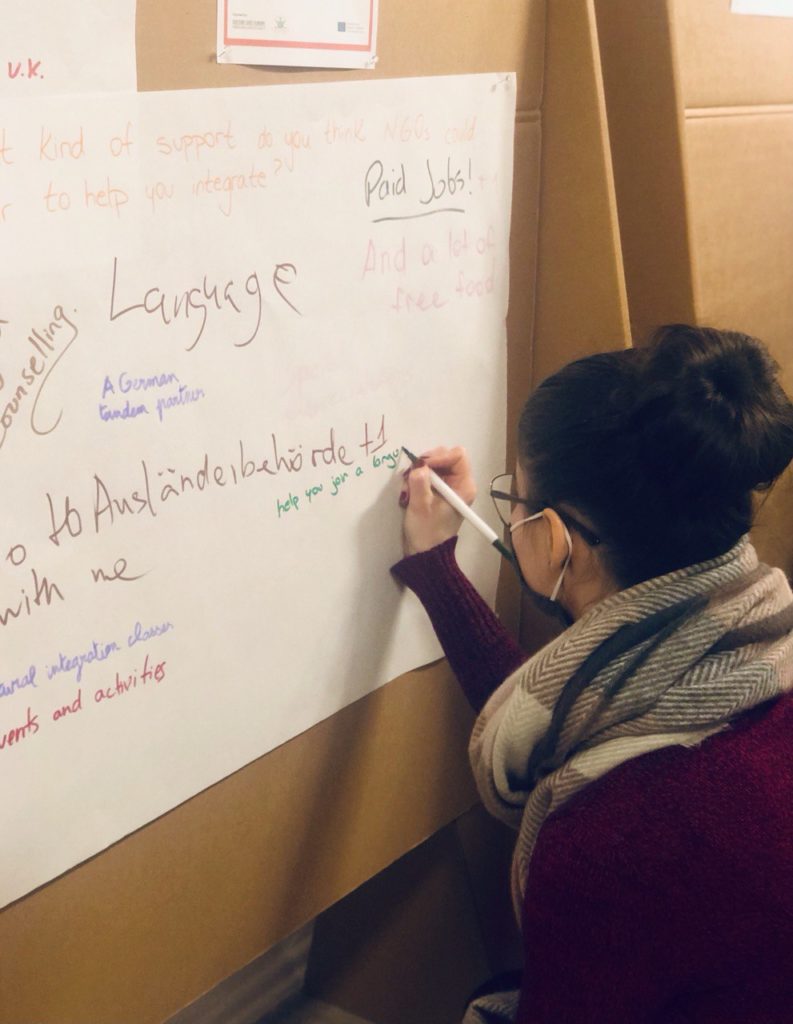 U.K.
t kind of support do you think NGOs could
r to help you integrate?
Paid Jobs! +1
And a lot of
free food
Language
ounselling.
A German
tandem partner
o to Ausländerbehörde +1
help you join a langu
with me
ural integration classes
vents and activities